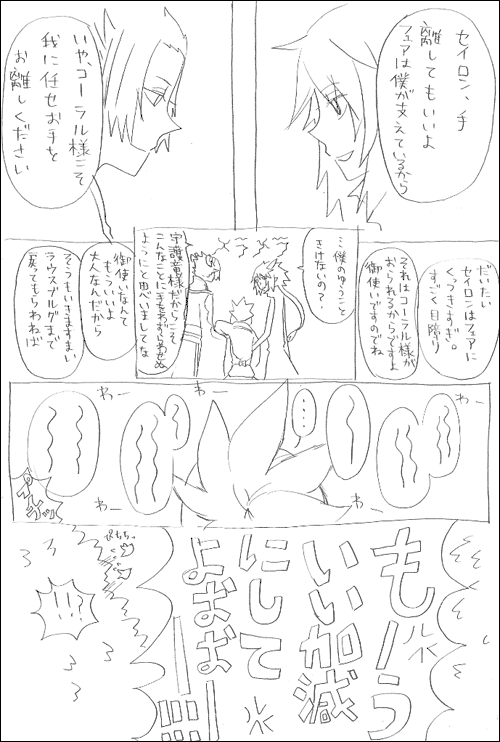 セイロン、手
離してもいいよ
フェアは僕が支えているから
いや、コーラル様こそ
我に任せお手を
お離しください
だいたい
セイロンはフェアに
くっつきすぎ。
すごく目障り
それはコーラル様が
おられるからですよ
御使いですのでね
…僕のゆうこと
きけないの？
守護竜様だからこそ
こんなことに手をわずらわせぬ
ようにと思いましてな
御使いなんて
もういいよ
大人なんだから
そうもいきますまい
ラウスブルグまで
戻ってもらわねば
わー
わー
‥‥
わー
わー
プチッ
もーう
いい加減
にして
よぉぉ
ーー!!!!
!!?